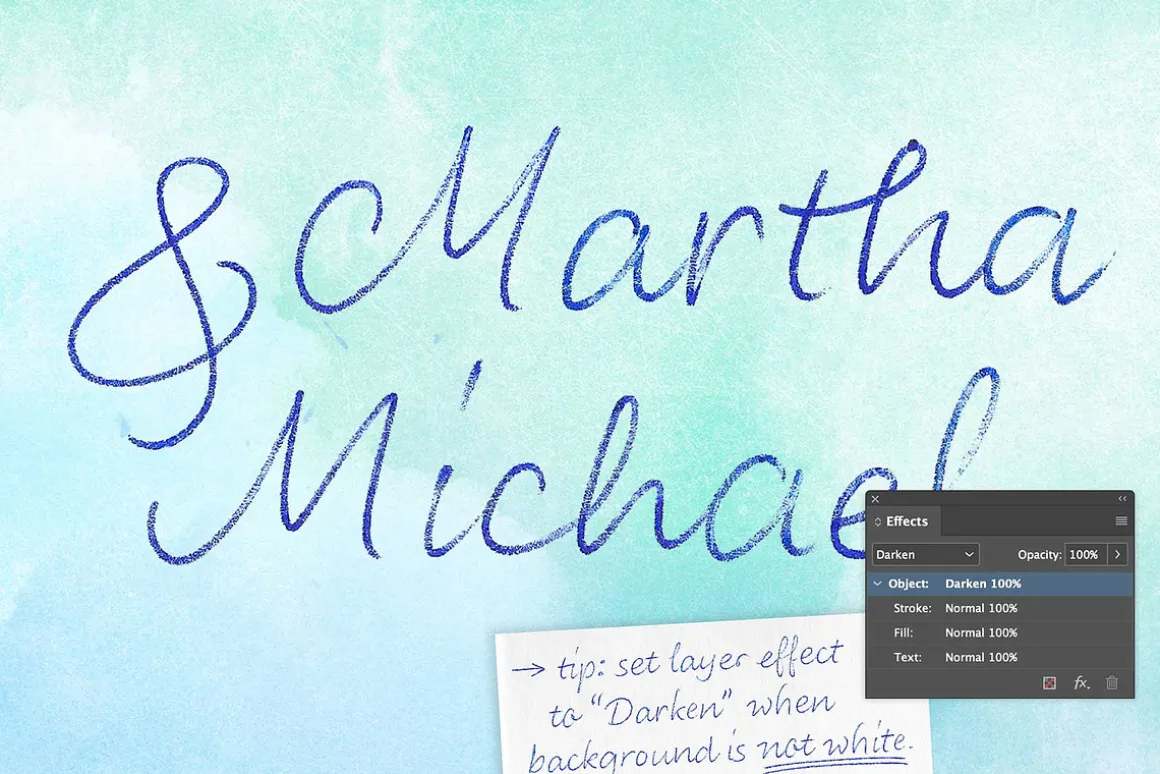 & Martha
Michael
Effects
Darken Opacity: 100%
Object: Darken 100%
Stroke: Normal 100%
Fill: Normal 100%
Text: Normal 100%
fx.
→ tip: set layer effect
to “Darken” when
background is not white.